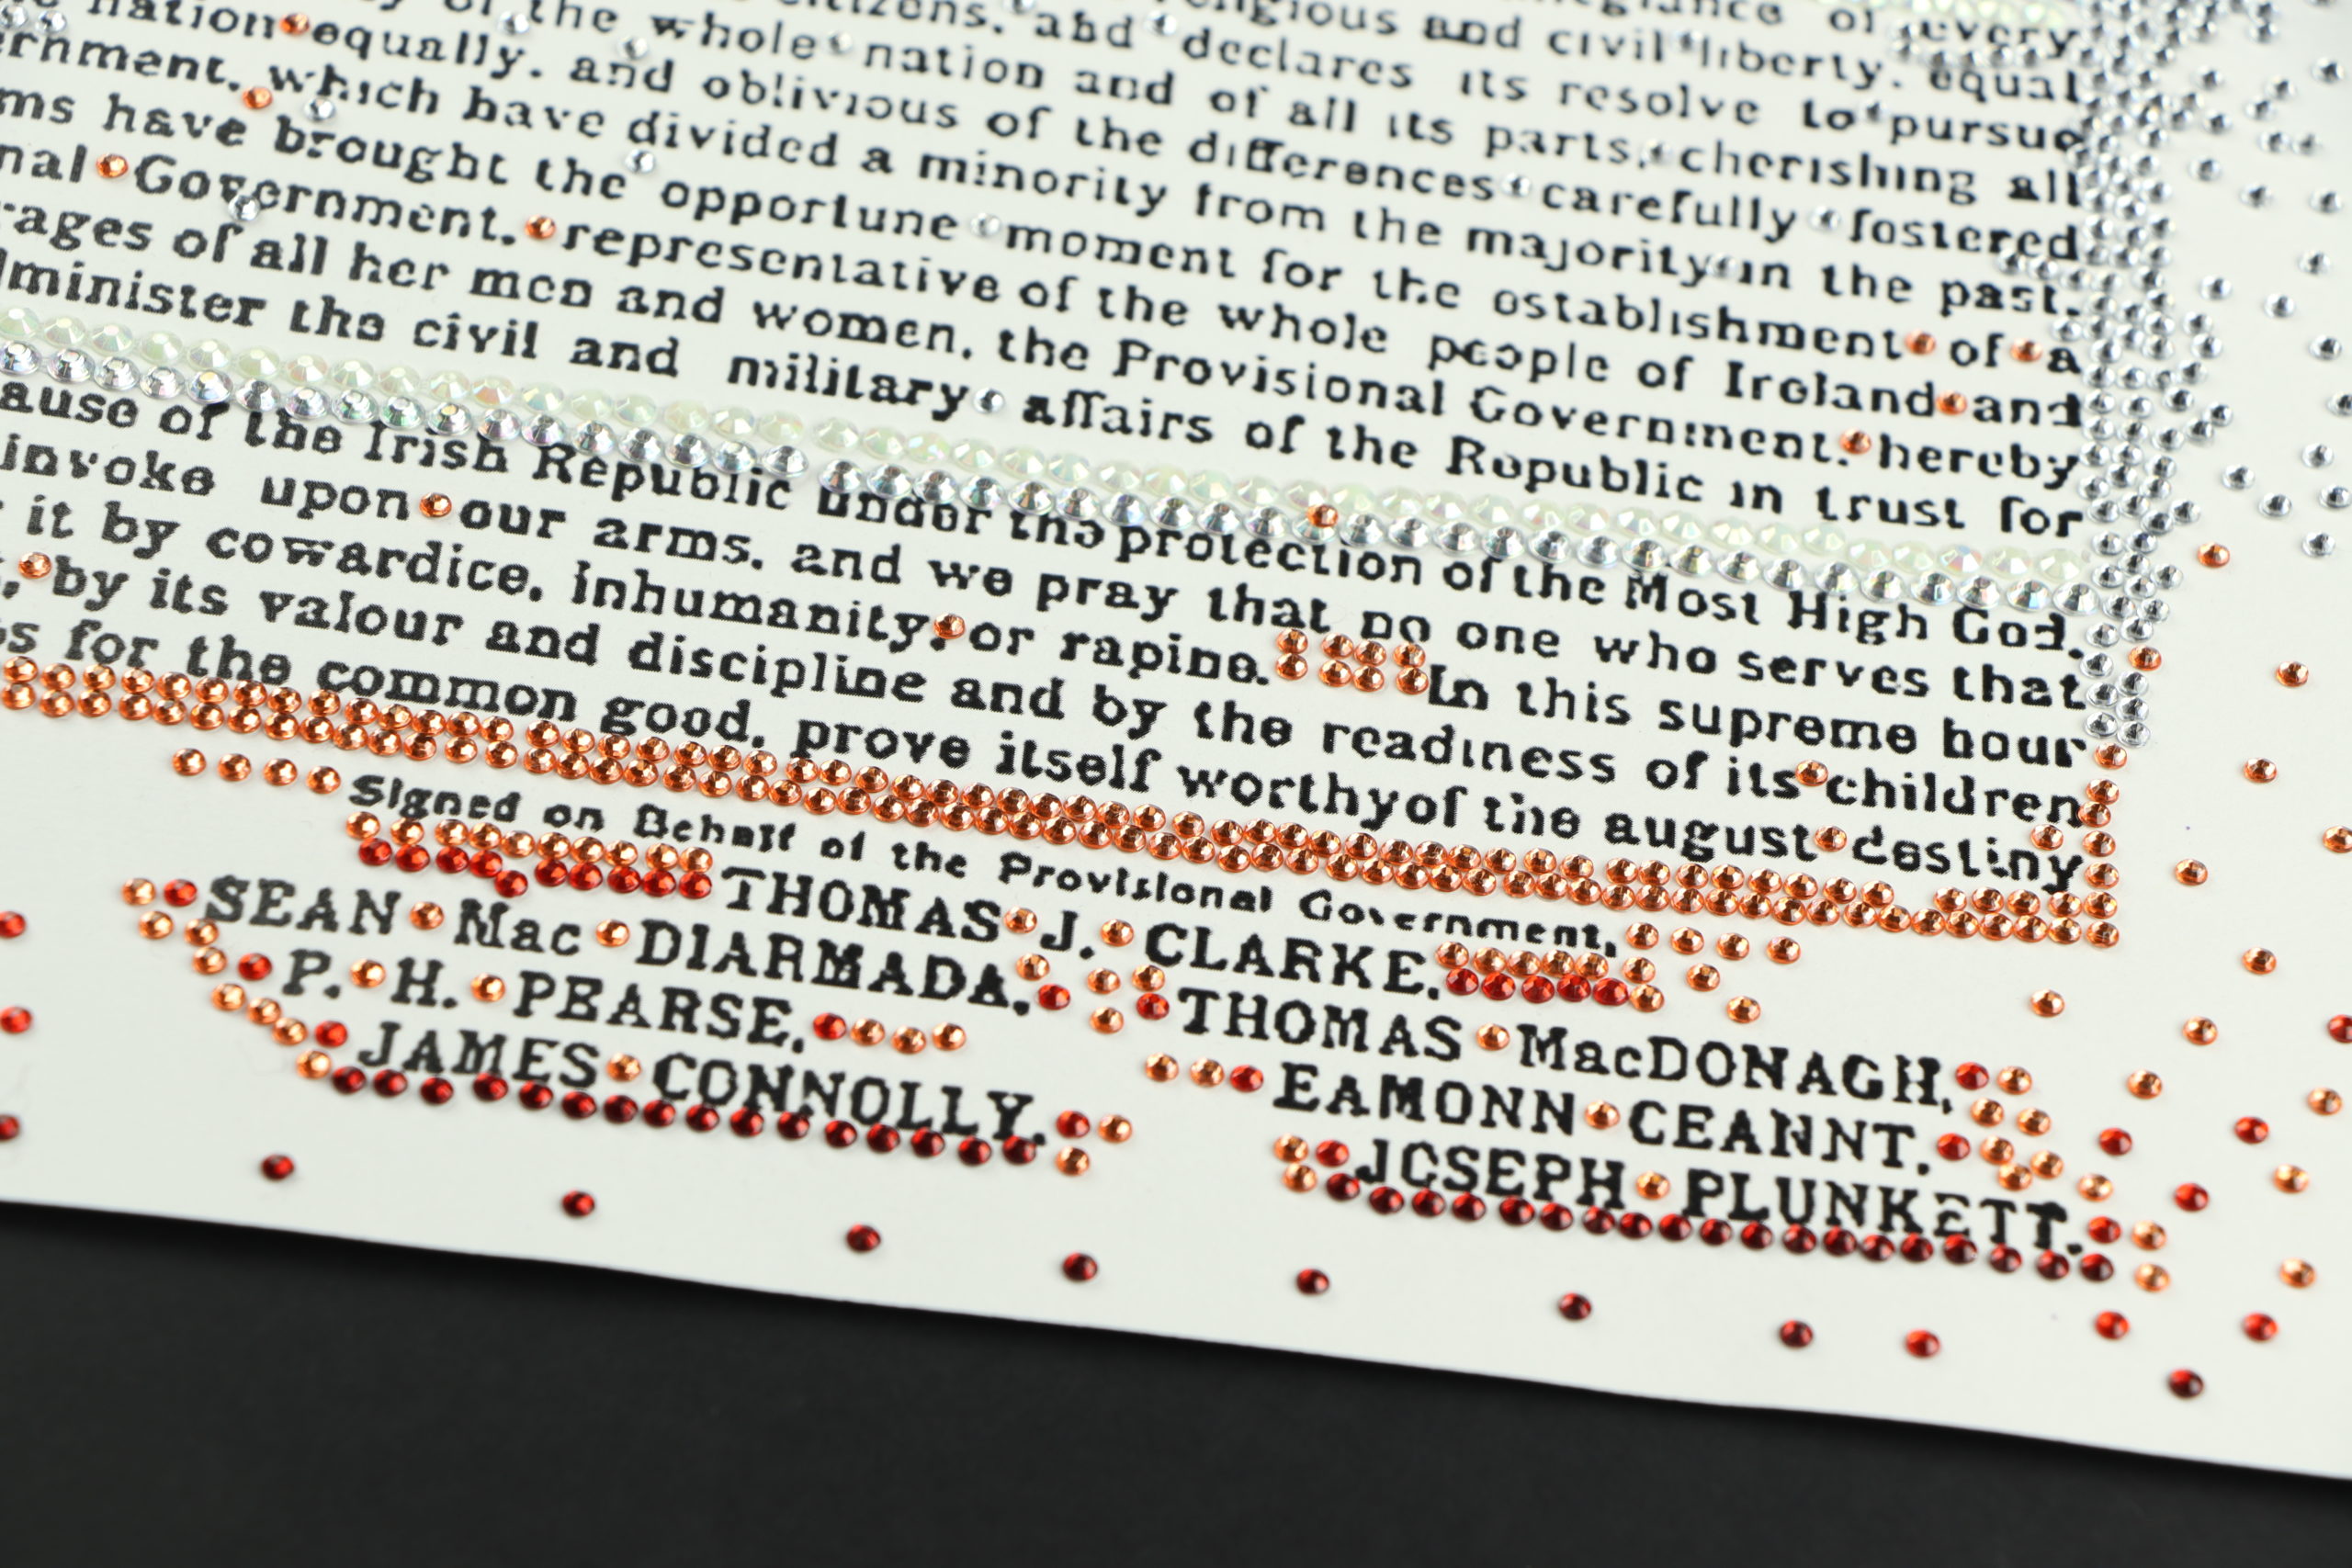 allegiance of every
religious and civil liberty, equal
citizens, and declares its resolve to pursue
of the whole nation and of all its parts, cherishing all
nation equally, and oblivious of the differences carefully fostered
ernment, which have divided a minority from the majority in the past.
ms have brought the opportune moment for the establishment of a
nal Government, representative of the whole people of Ireland and
rages of all her men and women, the Provisional Government, hereby
minister the civil and military affairs of the Republic in trust for
ause of the Irish Republic under the protection of the Most High God,
invoke upon our arms, and we pray that no one who serves that
it by cowardice, inhumanity, or rapine. In this supreme hour
, by its valour and discipline and by the readiness of its children
s for the common good, prove itself worthy of the august destiny
Signed on Behalf of the Provisional Government,
THOMAS J. CLARKE,
SEAN Mac DIARMADA, THOMAS MacDONAGH,
P. H. PEARSE, EAMONN CEANNT,
JAMES CONNOLLY, JOSEPH PLUNKETT.